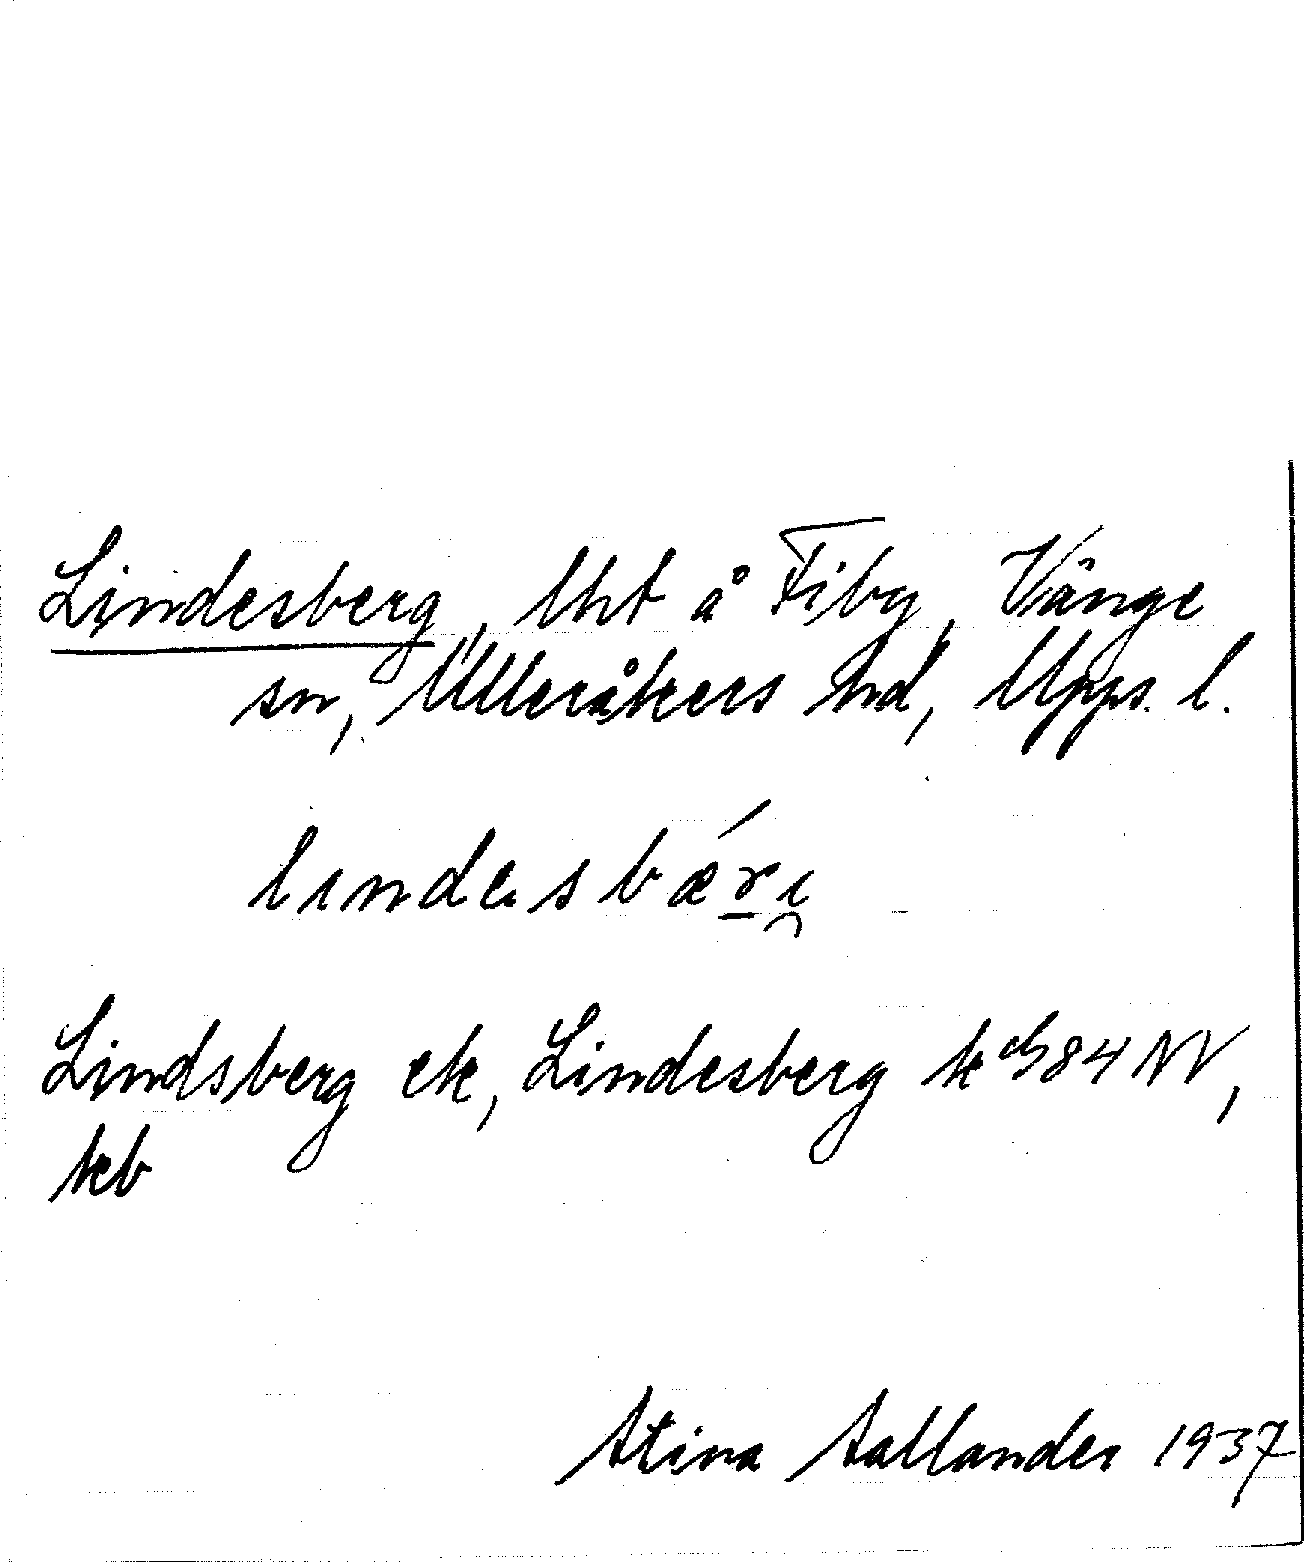 Lindesberg, lht å Fiby, Vänge
sn, Ulleråkers hd, Upps. l.
lındesbǽrı̯
Lindsberg ek, Lindesberg k ch 84 NV,
kb
Stina Sallander 1937